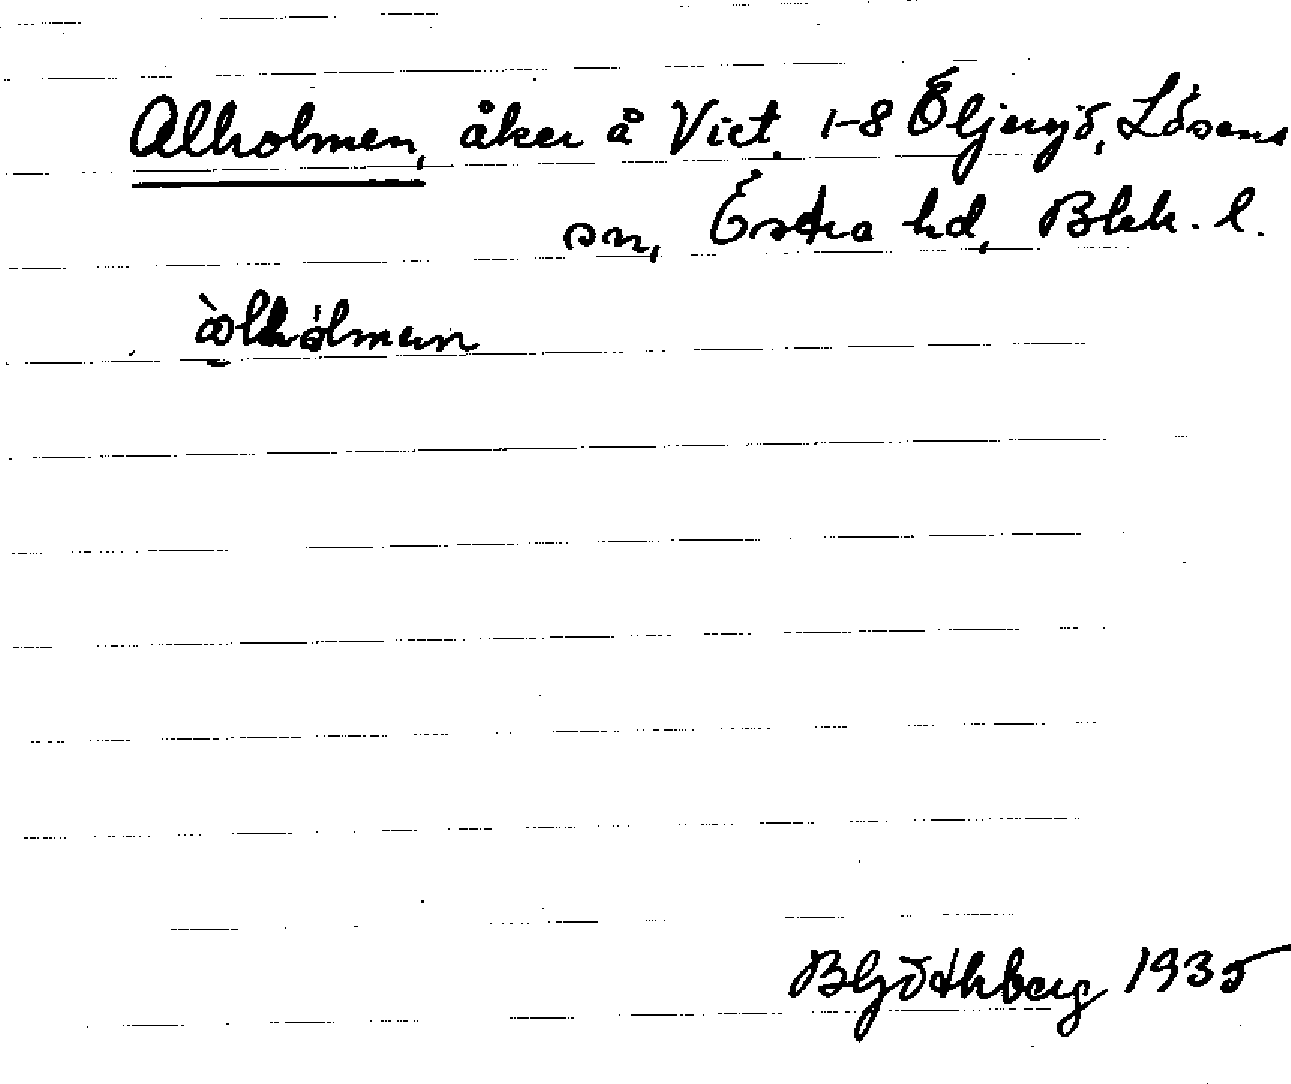 Alholmen, åker å Vict. 1-8 Öljersjö, Lösens
sn, Östra hd, Blek. l.
àlhólmen
B Göthberg 1935